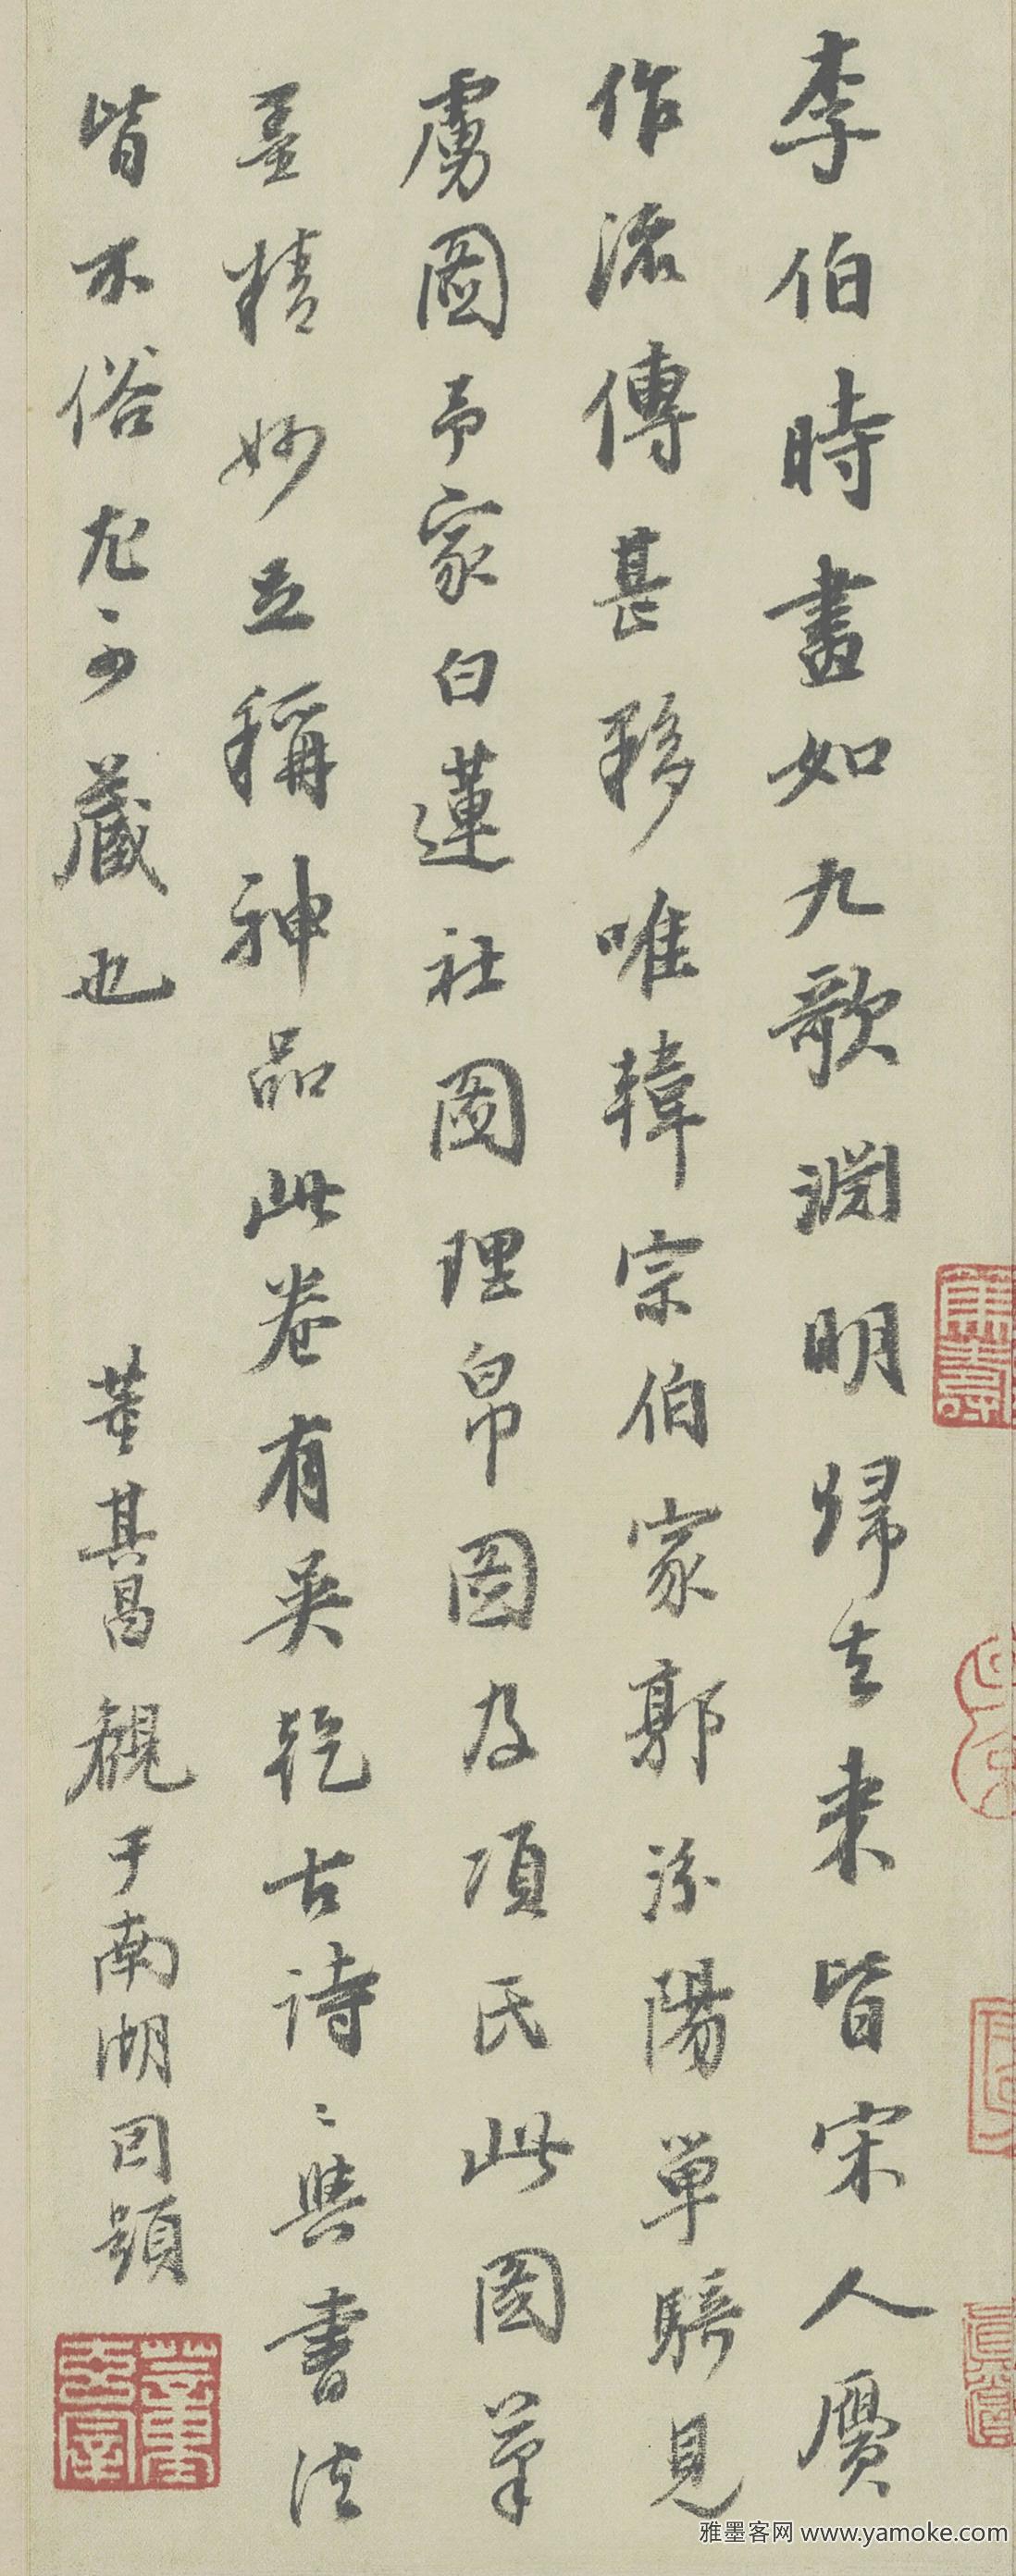 李伯時畫如九歌淵明歸去来皆宋人贋
作流傳甚夥唯韓宗伯家郭汾陽單騎見
虜圖予家白蓮社圖理帛圖及項氏此圖筆
墨精妙立稱神品此卷有吳說古詩〻與書法
皆不俗尤可藏也
董其昌觀于南湖因題
雅墨客网 www.yamoke.com